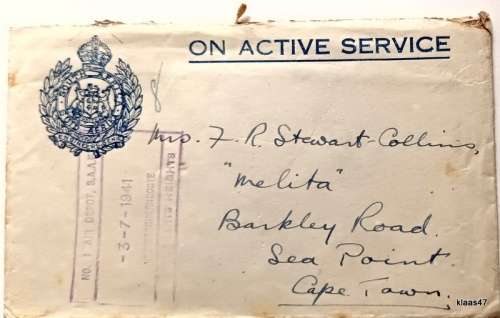 ON ACTIVE SERVICE
Mrs. F. R. Stewart-Collins,
"Melita"
Barkley Road.
Sea Point.
Cape Town.
NO. 1 AIR DEPOT, S.A.A.F.
-3-7-1941
HEIGHTS
klaas47